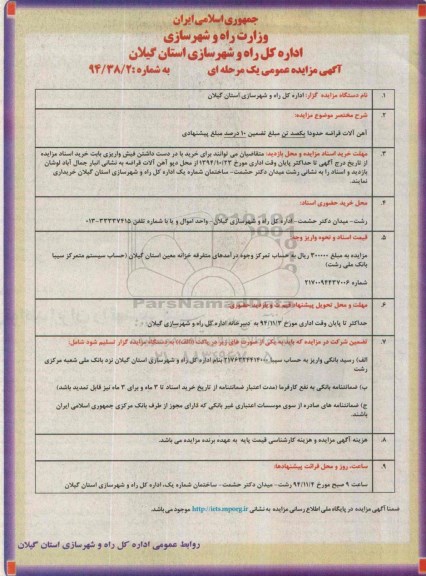 جمهوری اسلامی ایران
وزارت راه و شهرسازی
اداره کل راه و شهرسازی استان گیلان
آگهی مزایده عمومی یک مرحله ای به شماره: ۹۴/۳۸/۲
۱. نام دستگاه مزایده گزار: اداره کل راه و شهرسازی استان گیلان
۲. شرح مختصر موضوع مزایده:
آهن آلات قراضه حدودا یکصد تن مبلغ تضمین ۱۰ درصد مبلغ پیشنهادی
۳. مهلت خرید اسناد مزایده و محل بازدید: متقاضیان می توانند برای خرید با در دست داشتن فیش واریزی بابت خرید اسناد مزایده
از تاریخ درج آگهی تا حداکثر پایان وقت اداری مورخ ۱۳۹۴/۱۰/۲۳ از محل دپو آهن آلات قراضه به نشانی انبار جمال آباد لوشان
بازدید و اسناد را به نشانی رشت میدان دکتر حشمت- ساختمان شماره یک اداره کل راه و شهرسازی استان گیلان خریداری
نمایند.
۴. محل خرید حضوری اسناد:
رشت- میدان دکتر حشمت- اداره کل راه و شهرسازی گیلان- واحد اموال و یا با شماره تلفن ۳۳۳۳۷۶۱۵-۰۱۳
۵. قیمت اسناد و نحوه واریز وجه:
مزایده به مبلغ ۳۰۰۰۰۰ ریال به حساب تمرکز وجوه درآمدهای متفرقه خزانه معین استان گیلان (حساب سیستم متمرکز سیبا
بانک ملی رشت)
شماره ۲۱۷۰۰۹۴۴۳۷۰۰۶
۶. مهلت و محل تحویل پیشنهاد قیمت و بازدید حضوری:
حداکثر تا پایان وقت اداری مورخ ۹۴/۱۱/۳ به دبیرخانه اداره کل راه و شهرسازی گیلان
۷. تضمین شرکت در مزایده که باید به یکی از صورت های زیر در پاکت (الف) به دستگاه مزایده گزار تسلیم شود شامل:
الف) رسید بانکی واریز به حساب سیبا بنام اداره کل راه و شهرسازی استان گیلان نزد بانک ملی شعبه مرکزی
رشت
ب) ضمانتنامه بانکی به نفع کارفرما (مدت اعتبار ضمانتنامه از تاریخ خرید اسناد تا ۳ ماه و برای ۳ ماه نیز قابل تمدید باشد)
ج) ضمانتنامه های صادره از سوی موسسات اعتباری غیر بانکی که دارای مجوز از طرف بانک مرکزی جمهوری اسلامی ایران
باشند.
۸. هزینه آگهی مزایده و هزینه کارشناسی قیمت پایه به عهده برنده مزایده می باشد.
۹. ساعت، روز و محل قرائت پیشنهادها:
ساعت ۹ صبح مورخ ۹۴/۱۱/۴ رشت- میدان دکتر حشمت- ساختمان شماره یک، اداره کل راه و شهرسازی استان گیلان
ضمنا آگهی مزایده در پایگاه ملی اطلاع رسانی مزایده به نشانی http://iets.mporg.ir موجود می باشد.
روابط عمومی اداره کل راه و شهرسازی استان گیلان
ParsNamadData